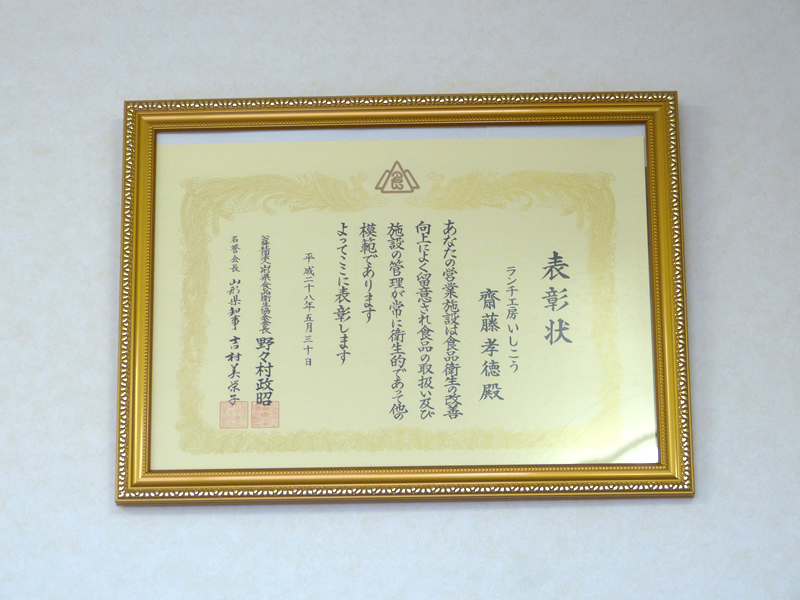 表彰状
ランチ工房いしこう
齋藤孝徳殿
あなたの営業施設は食品衛生の改善
向上によく留意され食品の取扱い及び
施設の管理が常に衛生的であって他の
模範であります
よってここに表彰します
平成二十八年五月三十日
公益社団法人山形県食品衛生協会会長 野々村政昭
名誉会長 山形県知事 吉村美栄子